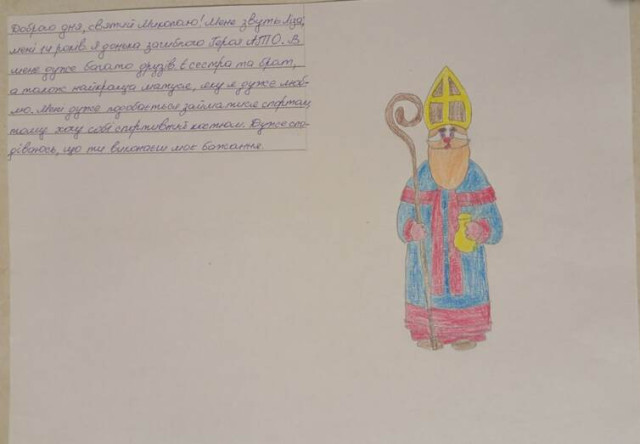 Доброго дня, святий Миколаю! Мене звуть Іза,
мені 14 років я донька загиблого Героя АТО. В
мене дуже багато друзів є сестра та брат,
а також найкраща матуся, яку я дуже люб-
лю. Мені дуже подобається займатися спортом
тому хочу собі спортивний костюм. Дуже спо-
діваюсь, що ти виконаєш моє бажання.